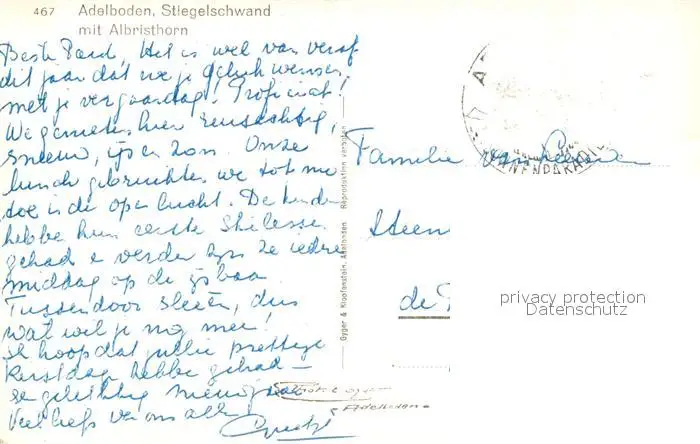 467 Adelboden, Stiegelschwand
mit Albristhorn
Beste Paul, Het is wel van veraf
dit jaar dat we je geluk wensen
met je verjaardag! Proficiat!
We genieten hier reusachtig,
sneeuw, ijs en zon. Onze
lunch gebruikten we tot nu
toe in de open lucht. De kinderen
hebben hun eerste skilesse
gehad e verder zijn ze iedere
middag op de ijsbaan
Tussendoor sleeën, dus
wat wil je nog meer!
Ik hoop dat jullie prettige
kerstdag hebbe gehad –
en gelukkig nieuwjaar
Veel liefs van ons allen
Gyger & Klopfenstein, Adelboden Reproduktion verboten
Familie van
Steen
de
Adelboden
privacy protection
Datenschutz